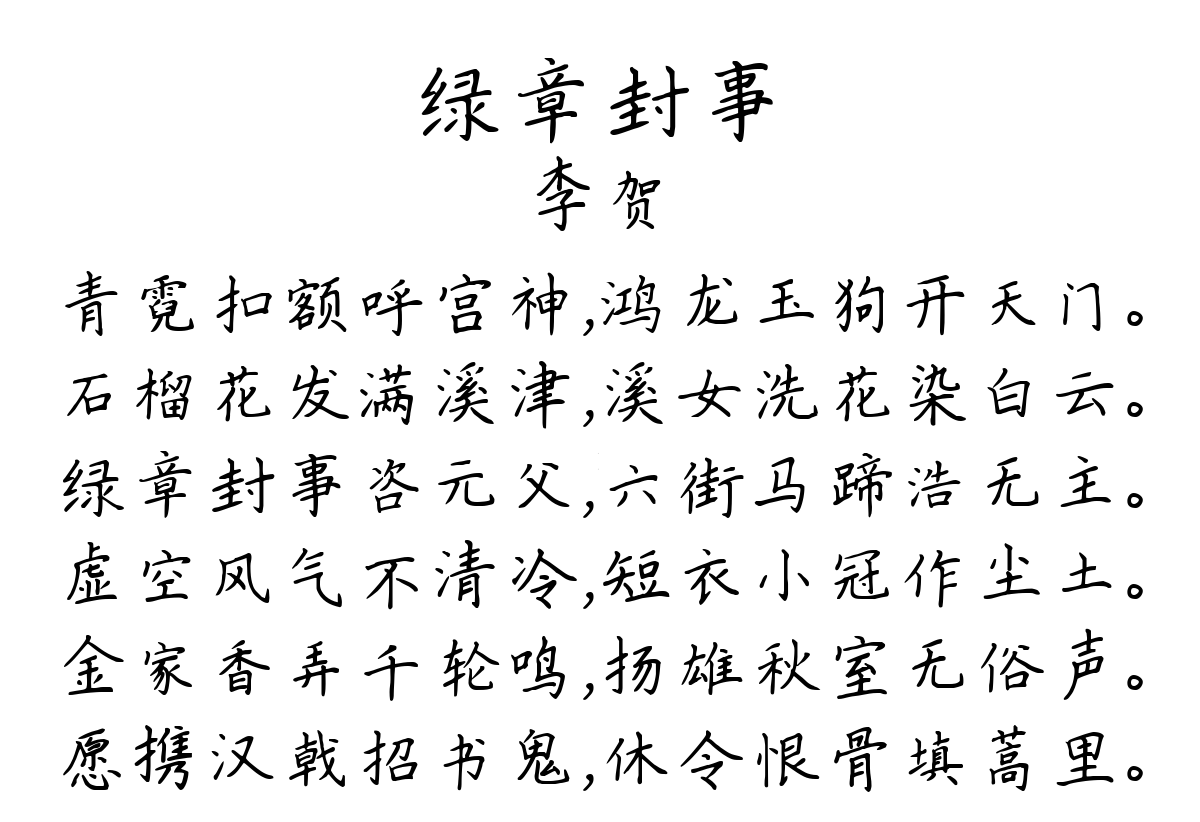 绿章封事
李贺
青霓扣额呼宫神,鸿龙玉狗开天门。
石榴花发满溪津,溪女洗花染白云。
绿章封事咨元父,六街马蹄浩无主。
虚空风气不清冷,短衣小冠作尘土。
金家香弄千轮鸣,扬雄秋室无俗声。
愿携汉戟招书鬼,休令恨骨填蒿里。